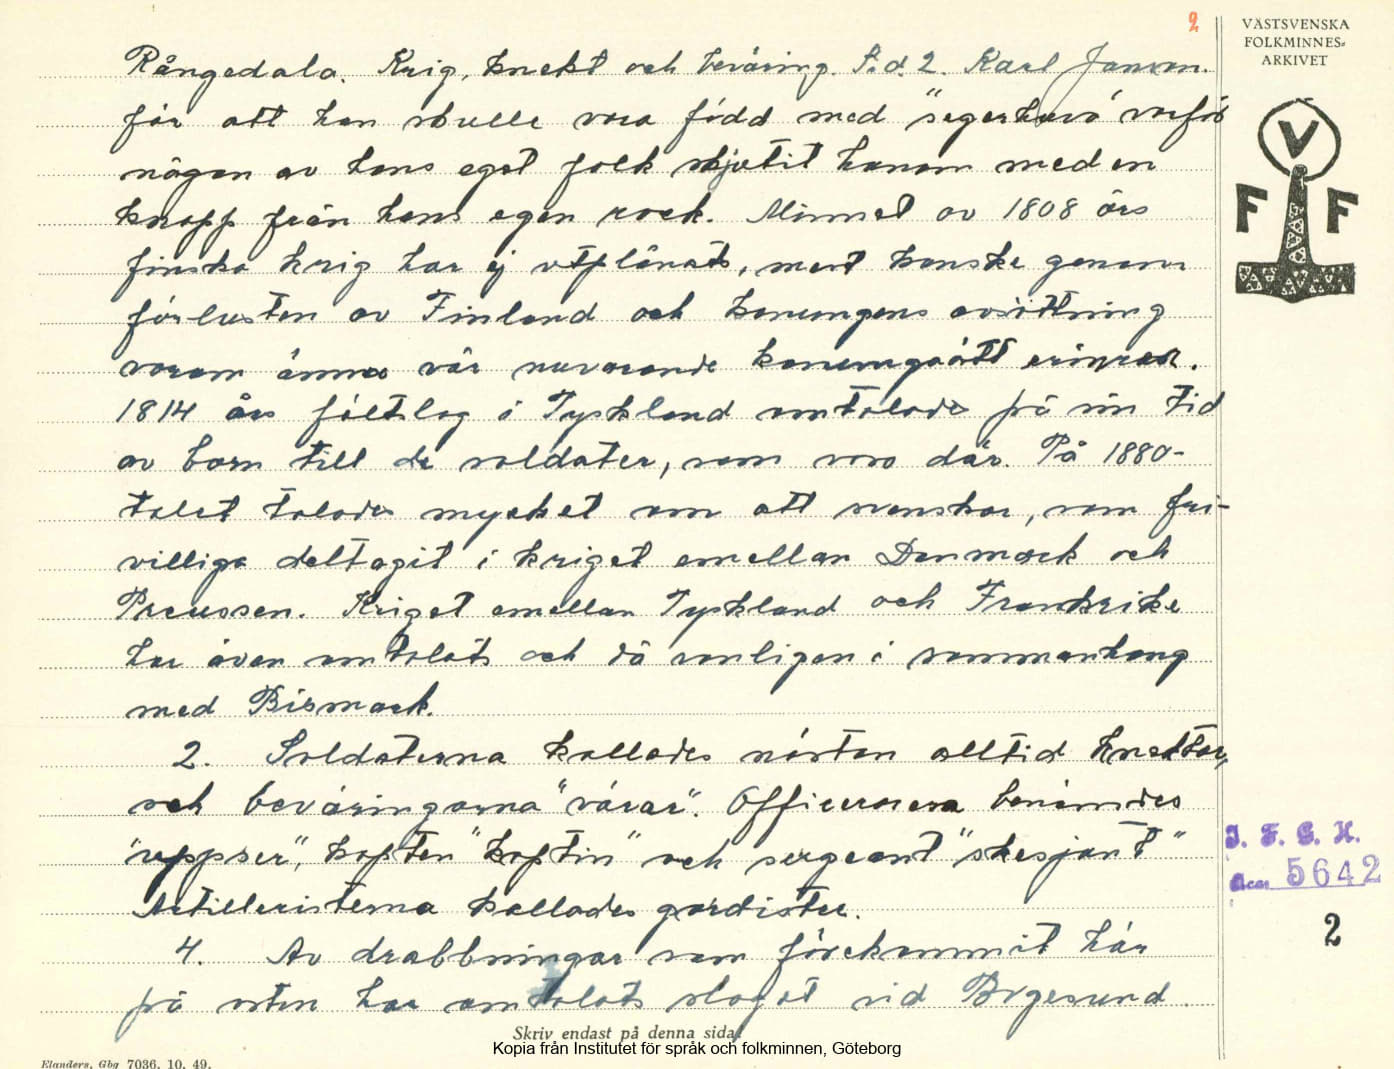 2
VÄSTSVENSKA
FOLKMINNES-
ARKIVET
V
F F
Rångedala. Krig, knekt och beväring. S.d. 2. Karl Janson.
för att han skulle vara född med "segerhuva" varför
någon av hans eget folk skjutit honom med en
knapp från hans egen rock. Minnet av 1808 års
finska krig har ej utplånats, mest kanske genom
förlusten av Finland och konungens avsättning
varom ännu vår nuvarande konungaätt erinrar.
1814 års fälttåg i Tyskland omtalade på sin tid
av barn till de soldater, som voro där. På 1880-
talet talades mycket om att svenskar, som fri-
villiga deltagit i kriget emellan Danmark och
Preussen. Kriget emellan Tyskland och Frankrike
har även omtalats och då vanligen i sammanhang
med Bismark.
2. Soldaterna kallades nästan alltid knektar,
och beväringarna "värar". Officerarna benämndes
"uppser", kapten "kaptin" och sergeant "skesjant"
Artilleristerna kallades gardister.
4. Av drabbningar som förekommit här
på orten har omtalats slaget vid Bogesund.
I. F. G. H.
Acc. 5642
2
Skriv endast på denna sida!
Kopia från Institutet för språk och folkminnen, Göteborg
Elanders, Gbg 7036. 10. 49.